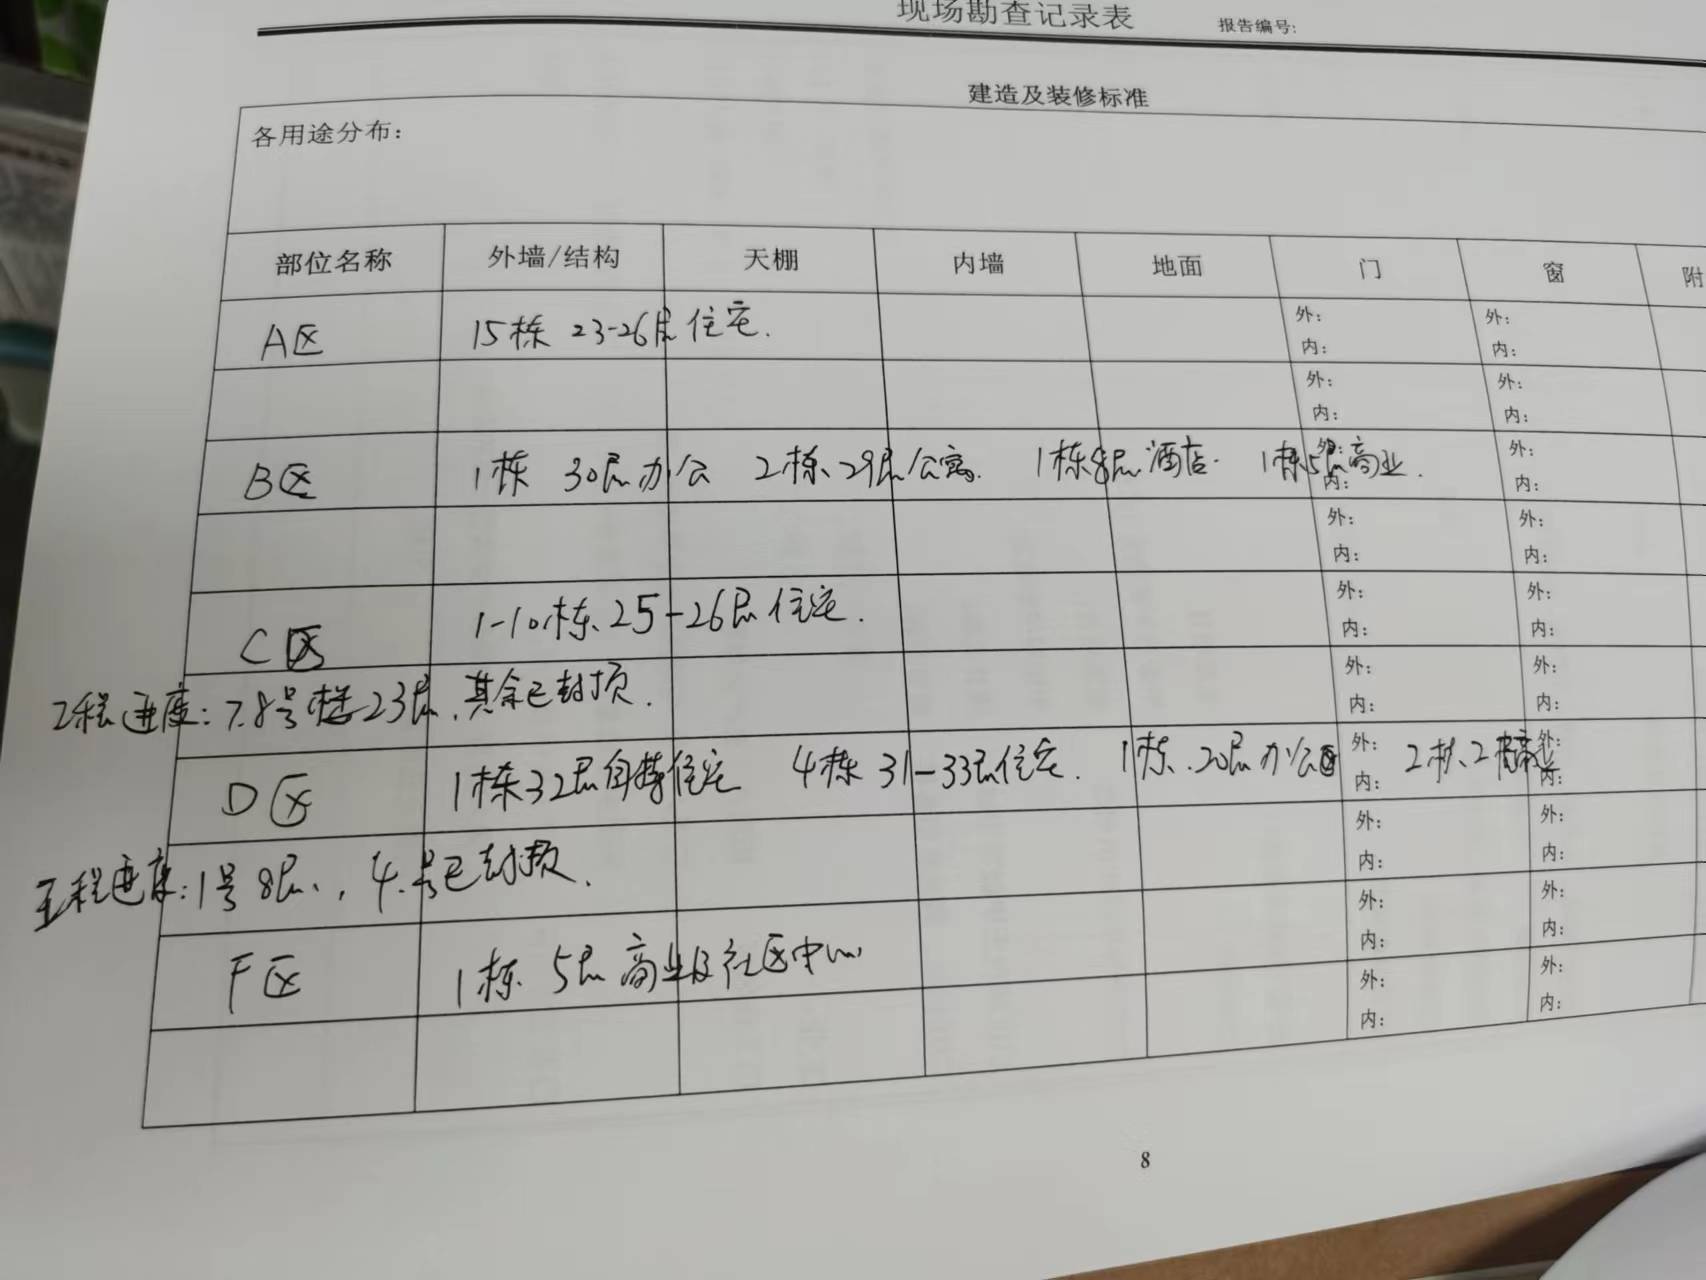 现场勘查记录表 报告编号:
建造及装修标准
各用途分布：
部位名称 外墙/结构 天棚 内墙 地面 门 窗 附
A区 15栋 23-26层住宅. 外： 外：
内： 内：
外： 外：
内： 内：
B区 1栋 30层办公 2栋、29层公寓. 1栋8层酒店. 1栋5层商业. 外： 外：
内： 内：
外： 外：
内： 内：
C区 1-10栋、25-26层住宅. 外： 外：
内： 内：
工程进度：7.8号楼23层，其余已封顶. 外： 外：
内： 内：
D区 1栋32层自持住宅 4栋31-33层住宅. 1栋.20层办公 2栋、2 外： 外：
内： 内：
工程进度：1号8层、，4.号已封顶. 外： 外：
内： 内：
外： 外：
内： 内：
F区 1栋. 5层商业及社区中心 外： 外：
内： 内：
8